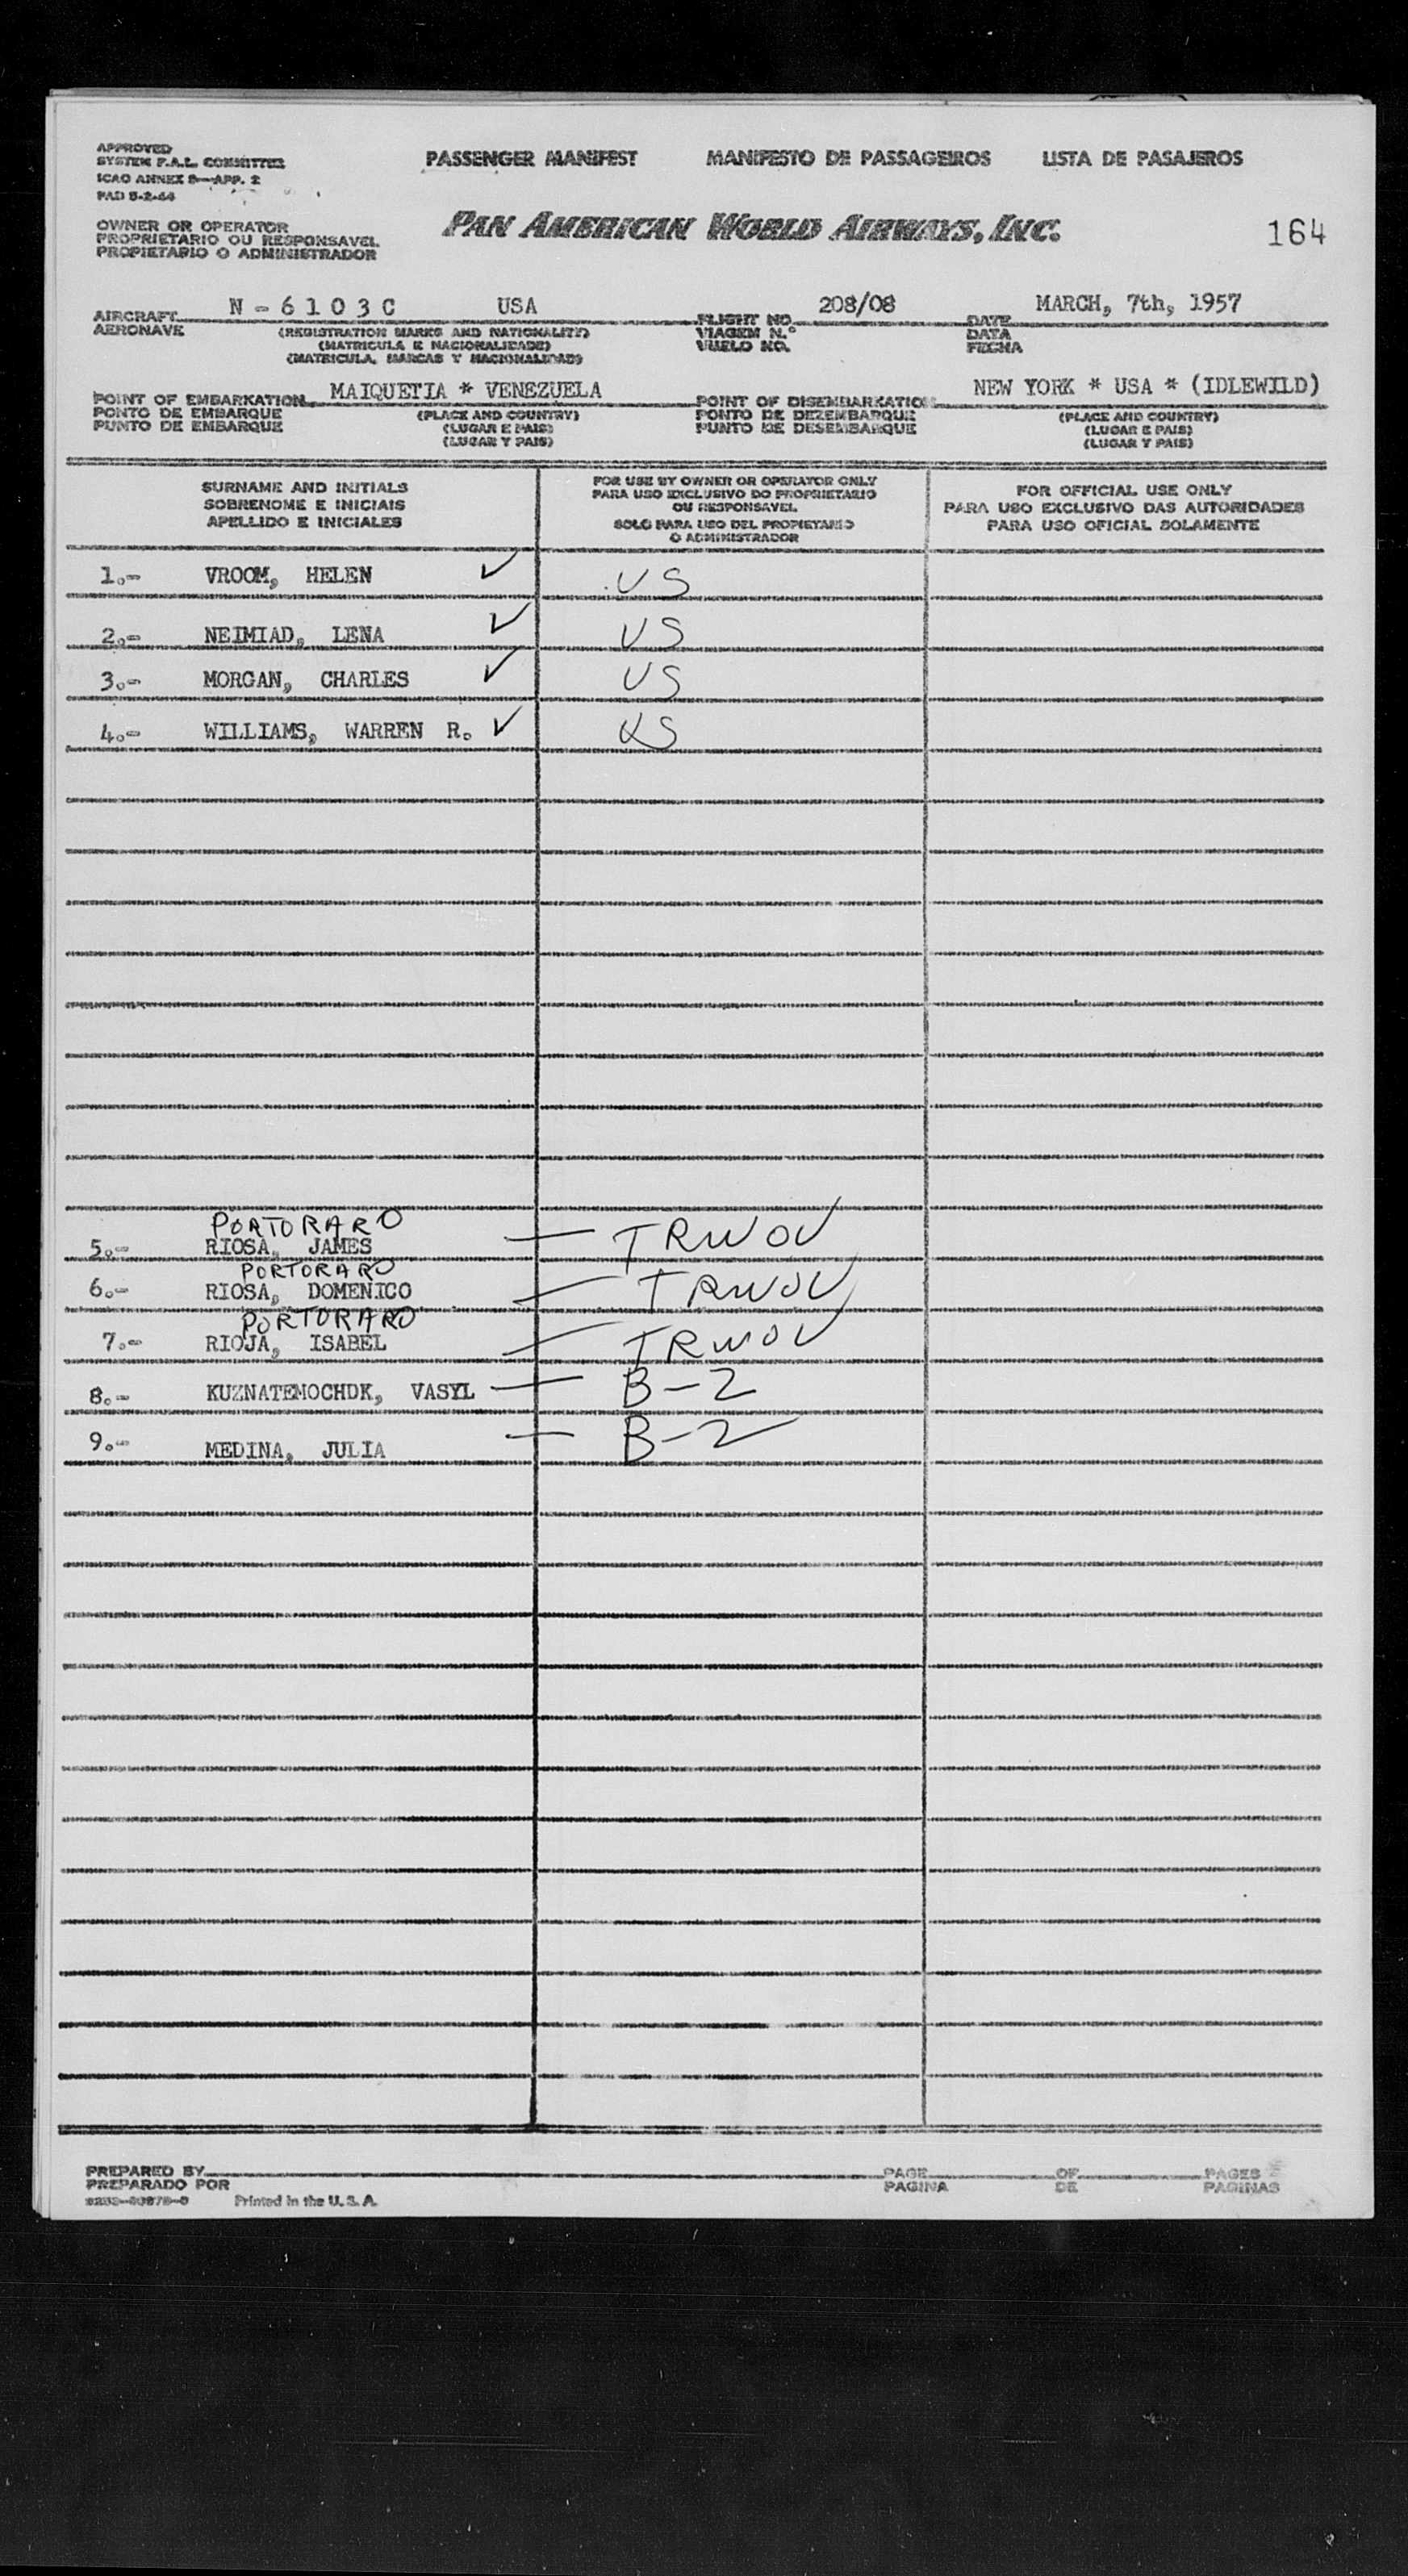 APPROVED
SYSTEM F.A.L. COMMITTEE
ICAO ANNEX 9—APP. 2
PAD 5-2-44
PASSENGER MANIFEST MANIFESTO DE PASSAGEIROS LISTA DE PASAJEROS
OWNER OR OPERATOR
PROPRIETARIO OU RESPONSAVEL
PROPIETARIO O ADMINISTRADOR
PAN AMERICAN WORLD AIRWAYS, INC.
164
AIRCRAFT N - 6 1 0 3 C USA FLIGHT NO. 208/08 DATE MARCH, 7th, 1957
AERONAVE (REGISTRATION MARKS AND NATIONALITY) VIAGEM N.° DATA
(MATRICULA E NACIONALIDADE) VUELO NO. FECHA
(MATRICULA, MARCAS Y NACIONALIDAD)
POINT OF EMBARKATION MAIQUETIA * VENEZUELA POINT OF DISEMBARKATION NEW YORK * USA * (IDLEWILD)
PONTO DE EMBARQUE (PLACE AND COUNTRY) PONTO DE DEZEMBARQUE (PLACE AND COUNTRY)
PUNTO DE EMBARQUE (LUGAR E PAIS) PUNTO DE DESEMBARQUE (LUGAR E PAIS)
(LUGAR Y PAIS) (LUGAR Y PAIS)
SURNAME AND INITIALS
SOBRENOME E INICIAIS
APELLIDO E INICIALES
FOR USE BY OWNER OR OPERATOR ONLY
PARA USO EXCLUSIVO DO PROPRIETARIO
OU RESPONSAVEL
SOLO PARA USO DEL PROPIETARIO
O ADMINISTRADOR
FOR OFFICIAL USE ONLY
PARA USO EXCLUSIVO DAS AUTORIDADES
PARA USO OFICIAL SOLAMENTE
1.- VROOM, HELEN ✓ US
2.- NEIMIAD, LENA ✓ US
3.- MORGAN, CHARLES ✓ US
4.- WILLIAMS, WARREN R. ✓ US
PORTORARO
5.- RIOSA, JAMES — TRWOV
PORTORARO
6.- RIOSA, DOMENICO — TRWOV
PORTORARO
7.- RIOJA, ISABEL — TRWOV
8.- KUZNATEMOCHDK, VASYL — B-2
9.- MEDINA, JULIA — B-2
PREPARED BY PAGE OF PAGES
PREPARADO POR PAGINA DE PAGINAS
Printed in the U. S. A.